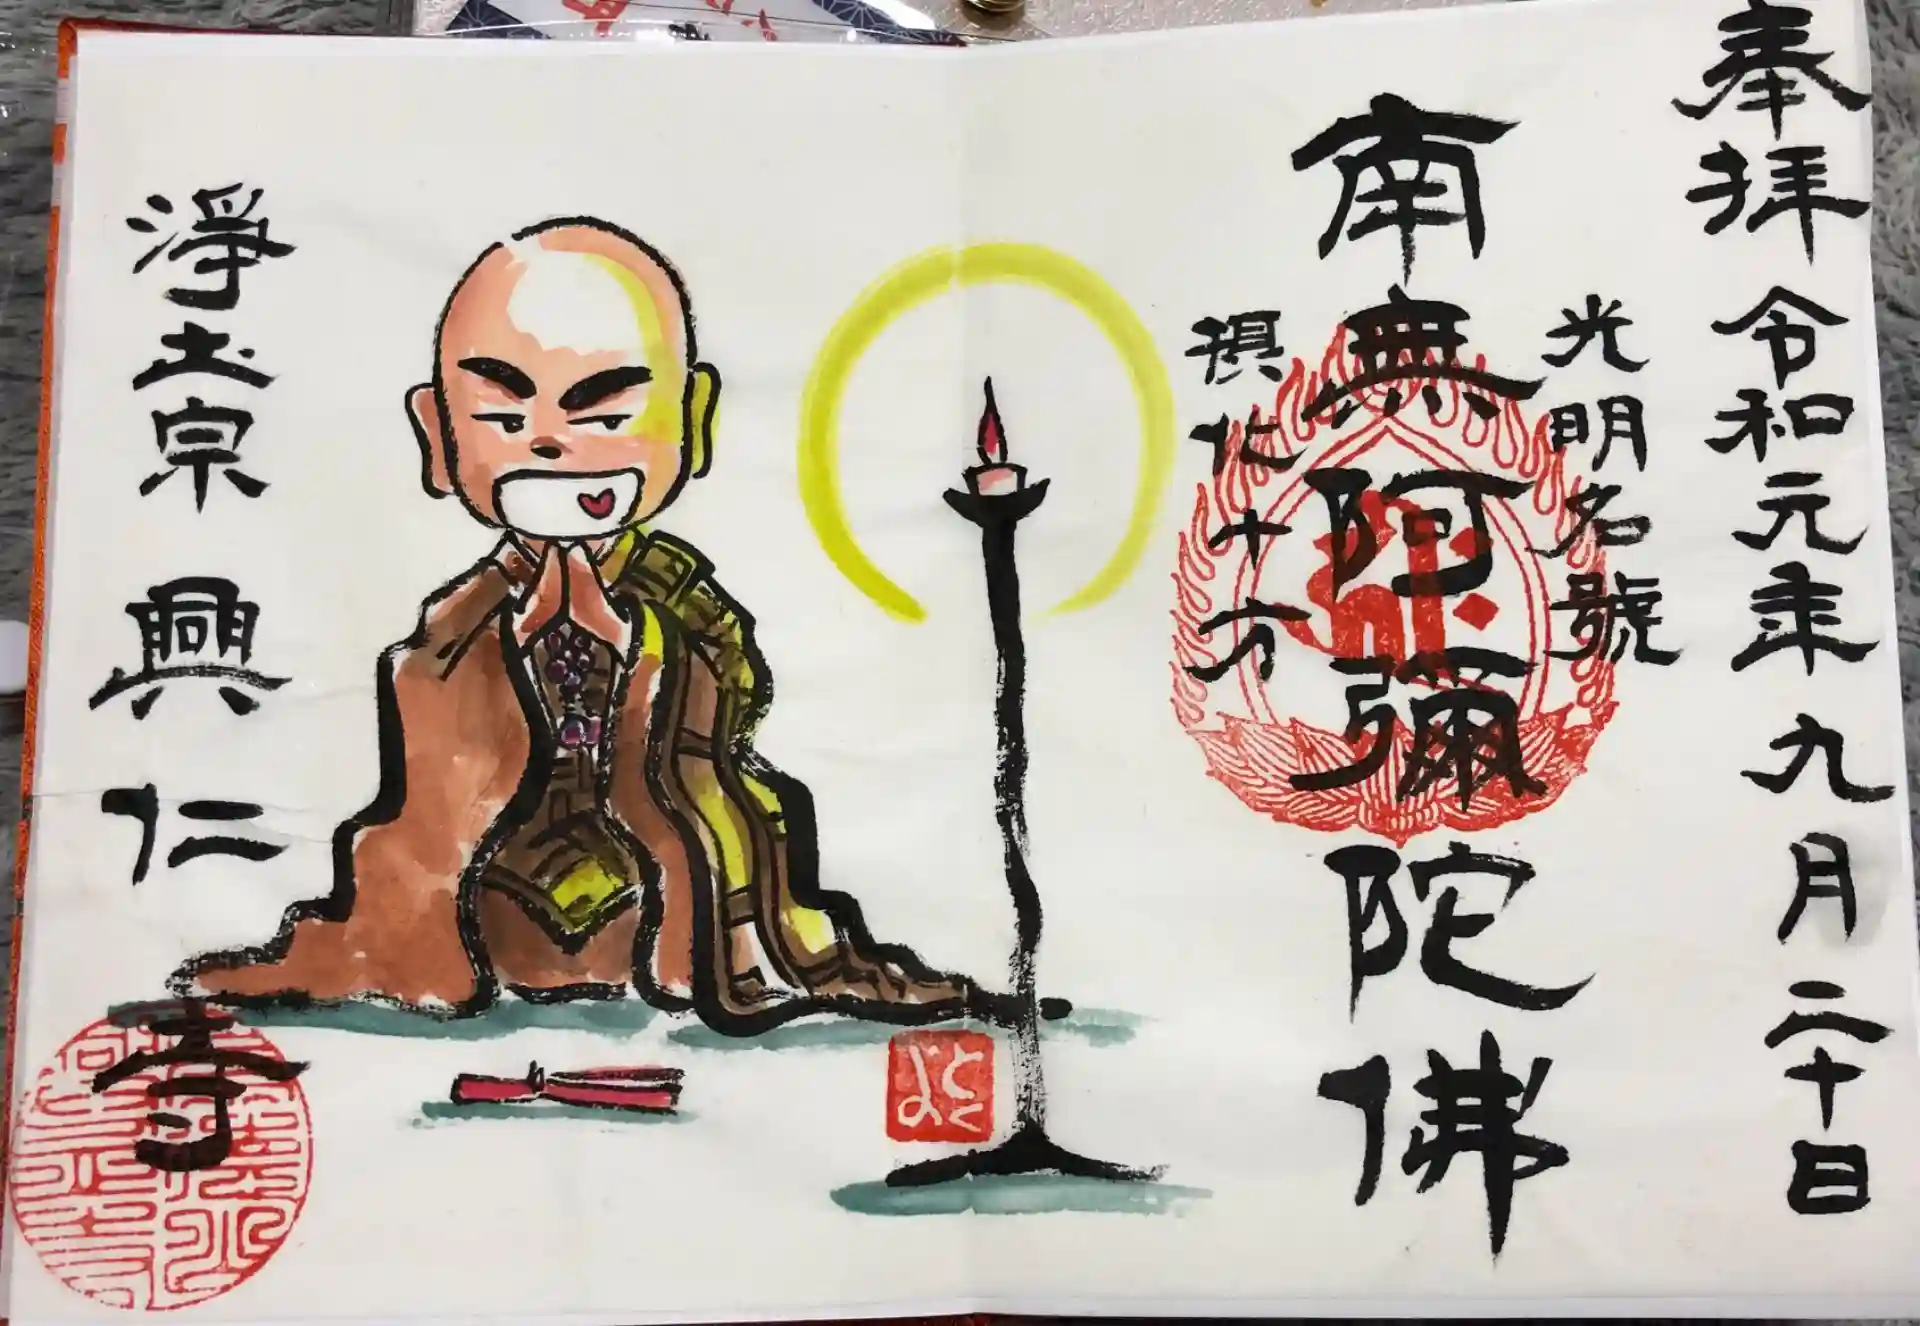 奉拝 令和元年九月二十日
光明名號
南無阿彌陀佛
摂化十方
とくよ
淨土宗 興仁寺